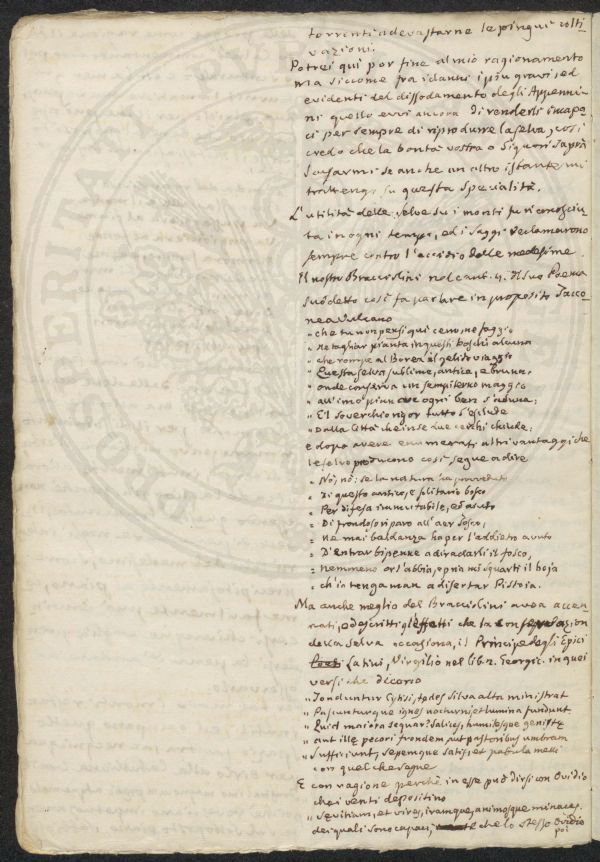 torrenti a devastarne le pingui colti-
vazioni.
Potrei qui por fine al mio ragionamento
ma siccome fra i danni i più gravi, ed
evidenti del dissodamento degli Appenni-
ni quello evvi ancora di renderli incapa-
ci per sempre di riprodurre la selva, così
credo che la bontà vostra o Signori saprà
scusarmi se anche un altro istante mi
trattengo su questa specialità.
L'utilità delle selve su i monti fu riconosciu-
ta in ogni tempo, ed i saggi declamarono
sempre contro l'eccidio delle medesime.
Il nostro Bracciolini nel cant. 4. Il suo Poema
suddetto così fa parlare in proposito Jacco-
ne a Vulcano
" che tu non pensi qui cerro, ne faggio
" ne tagliar pianta in questi boschi alcuna
" che rompe al Borea il gelido viaggio
" Questa selva sublime, antica, e bruna,
" onde conserva un sempiterno maggio
" all'imo pian ove ogni ben s'aduna;
" E'l soverchio rigor tutto s'esclude
" Dalla Città che in se due cerchi chiude;
e dopo avere enumerati altri vantaggi che
le selve producono così segue a dire
" Nò, nò; se la natura ha provveduto
" Di questo antico, e solitario bosco
" Per difesa immutabile, ed aiuto
" Di frondoso riparo all'aer fosco,
" ne mai baldanza ha per l'addietro avuto
" D'entrar bipenne a diradarli il fosco,
" nemmeno or l'abbia, e pria mi squarti il boja
" ch'io tenga man a disertar Pistoia.
Ma anche meglio del Bracciolini avea accen-
nati, e descritti gl'effetti che la conservazion
della selva occasiona, il Principe degli Epici
Latini, Virgilio nel lib. 2. Georgic. in quei
versi che dicono
" Tonduntur Cytisi, tædas silva alta ministrat
" Pascunturque ignes nocturni, et lumina fundunt
" Quid maiora sequar? Salices, humilesque genistę
" aut illę pecori frondem aut pastoribus umbram
" Sufficiunt, sepemque satis, et pabula melli
con quel che segue
E con ragione perchè in esse può dirsi con Ovidio
che i venti depositino
" sevitiam, et vires, iramque, animosque minaces.
dei quali sono capaci, che lo stesso Ovidio
poi